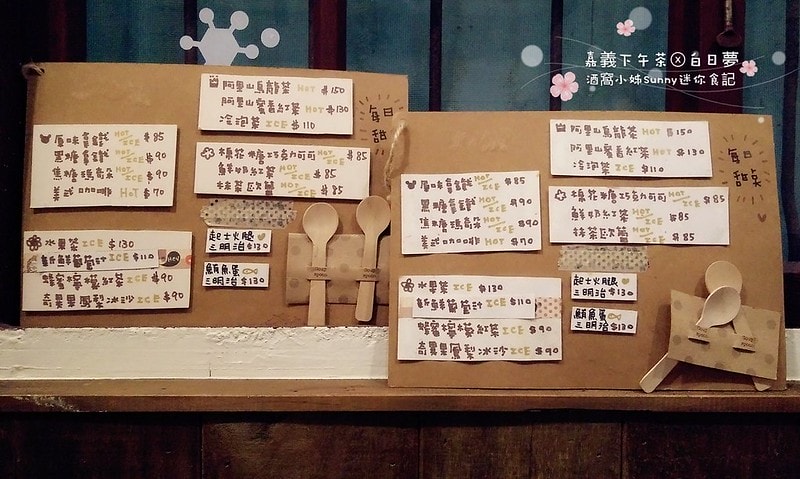 嘉義下午茶ⓧ白日夢
酒窩小姊Sunny迷你食記
阿里山烏龍茶 HOT $150
阿里山蜜香紅茶 HOT $130
冷泡茶 ICE $110
每日
原味拿鐵 HOT/ICE $85
黑糖拿鐵 HOT/ICE $90
焦糖瑪奇朵 HOT/ICE $90
美式咖啡 HOT $70
棉花糖巧克力可可 HOT/ICE $85
鮮奶紅茶 HOT/ICE $85
抹茶歐蕾 HOT/ICE $85
水果茶 ICE $130
新鮮葡萄汁 ICE $110
蜂蜜檸檬紅茶 ICE $90
奇異果鳳梨冰沙 ICE $90
起士火腿
三明治 $130
鮪魚蛋
三明治 $130
阿里山烏龍茶 HOT $150
阿里山蜜香紅茶 HOT $130
冷泡茶 ICE $110
每日
原味拿鐵 HOT/ICE $85
黑糖拿鐵 HOT/ICE $90
焦糖瑪奇朵 HOT/ICE $90
美式咖啡 HOT $70
棉花糖巧克力可可 HOT/ICE $85
鮮奶紅茶 HOT/ICE $85
抹茶歐蕾 HOT/ICE $85
水果茶 ICE $130
新鮮葡萄汁 ICE $110
蜂蜜檸檬紅茶 ICE $90
奇異果鳳梨冰沙 ICE $90
起士火腿
三明治 $130
鮪魚蛋
三明治 $130